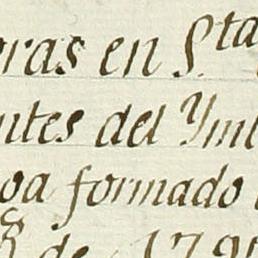 ras en S.ta
ntes del Ym
oa formado
8 de 179